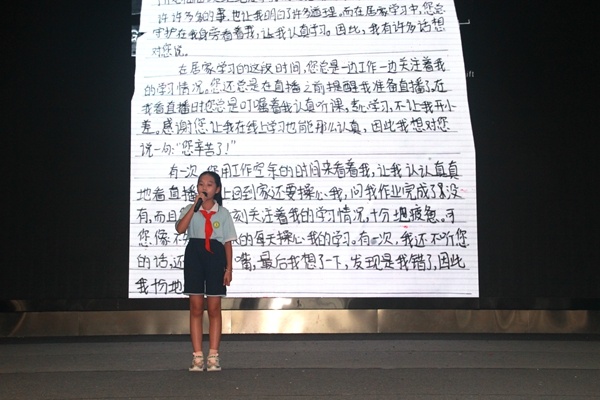 许许多多的事,也让我明白了许多道理。而在居家学习中,您总
守护在我身旁看着我,让我认真学习。因此,我有许多话想
对您说。
在居家学习的这段时间,您总是一边工作一边关注着我
的学习情况。您还总是在直播之前提醒我准备直播了,在
我看直播时您总是叮嘱着我认真听课,专心学习,不让我开小
差。感谢您,让我在线上学习也能那么认真,因此我想对您
说一句:“您辛苦了!”
有一次,您用工作空余的时间来看着我,让我认认真真
地看直播 上回到家还要操心我,问我作业完成了没
有,而且 刻关注着我的学习情况,十分疲惫。可
您像 的每天操心我的学习。有一次,我还不听您
的话,还 嘴,最后我想了一下,发现是我错了,因此
我十分地